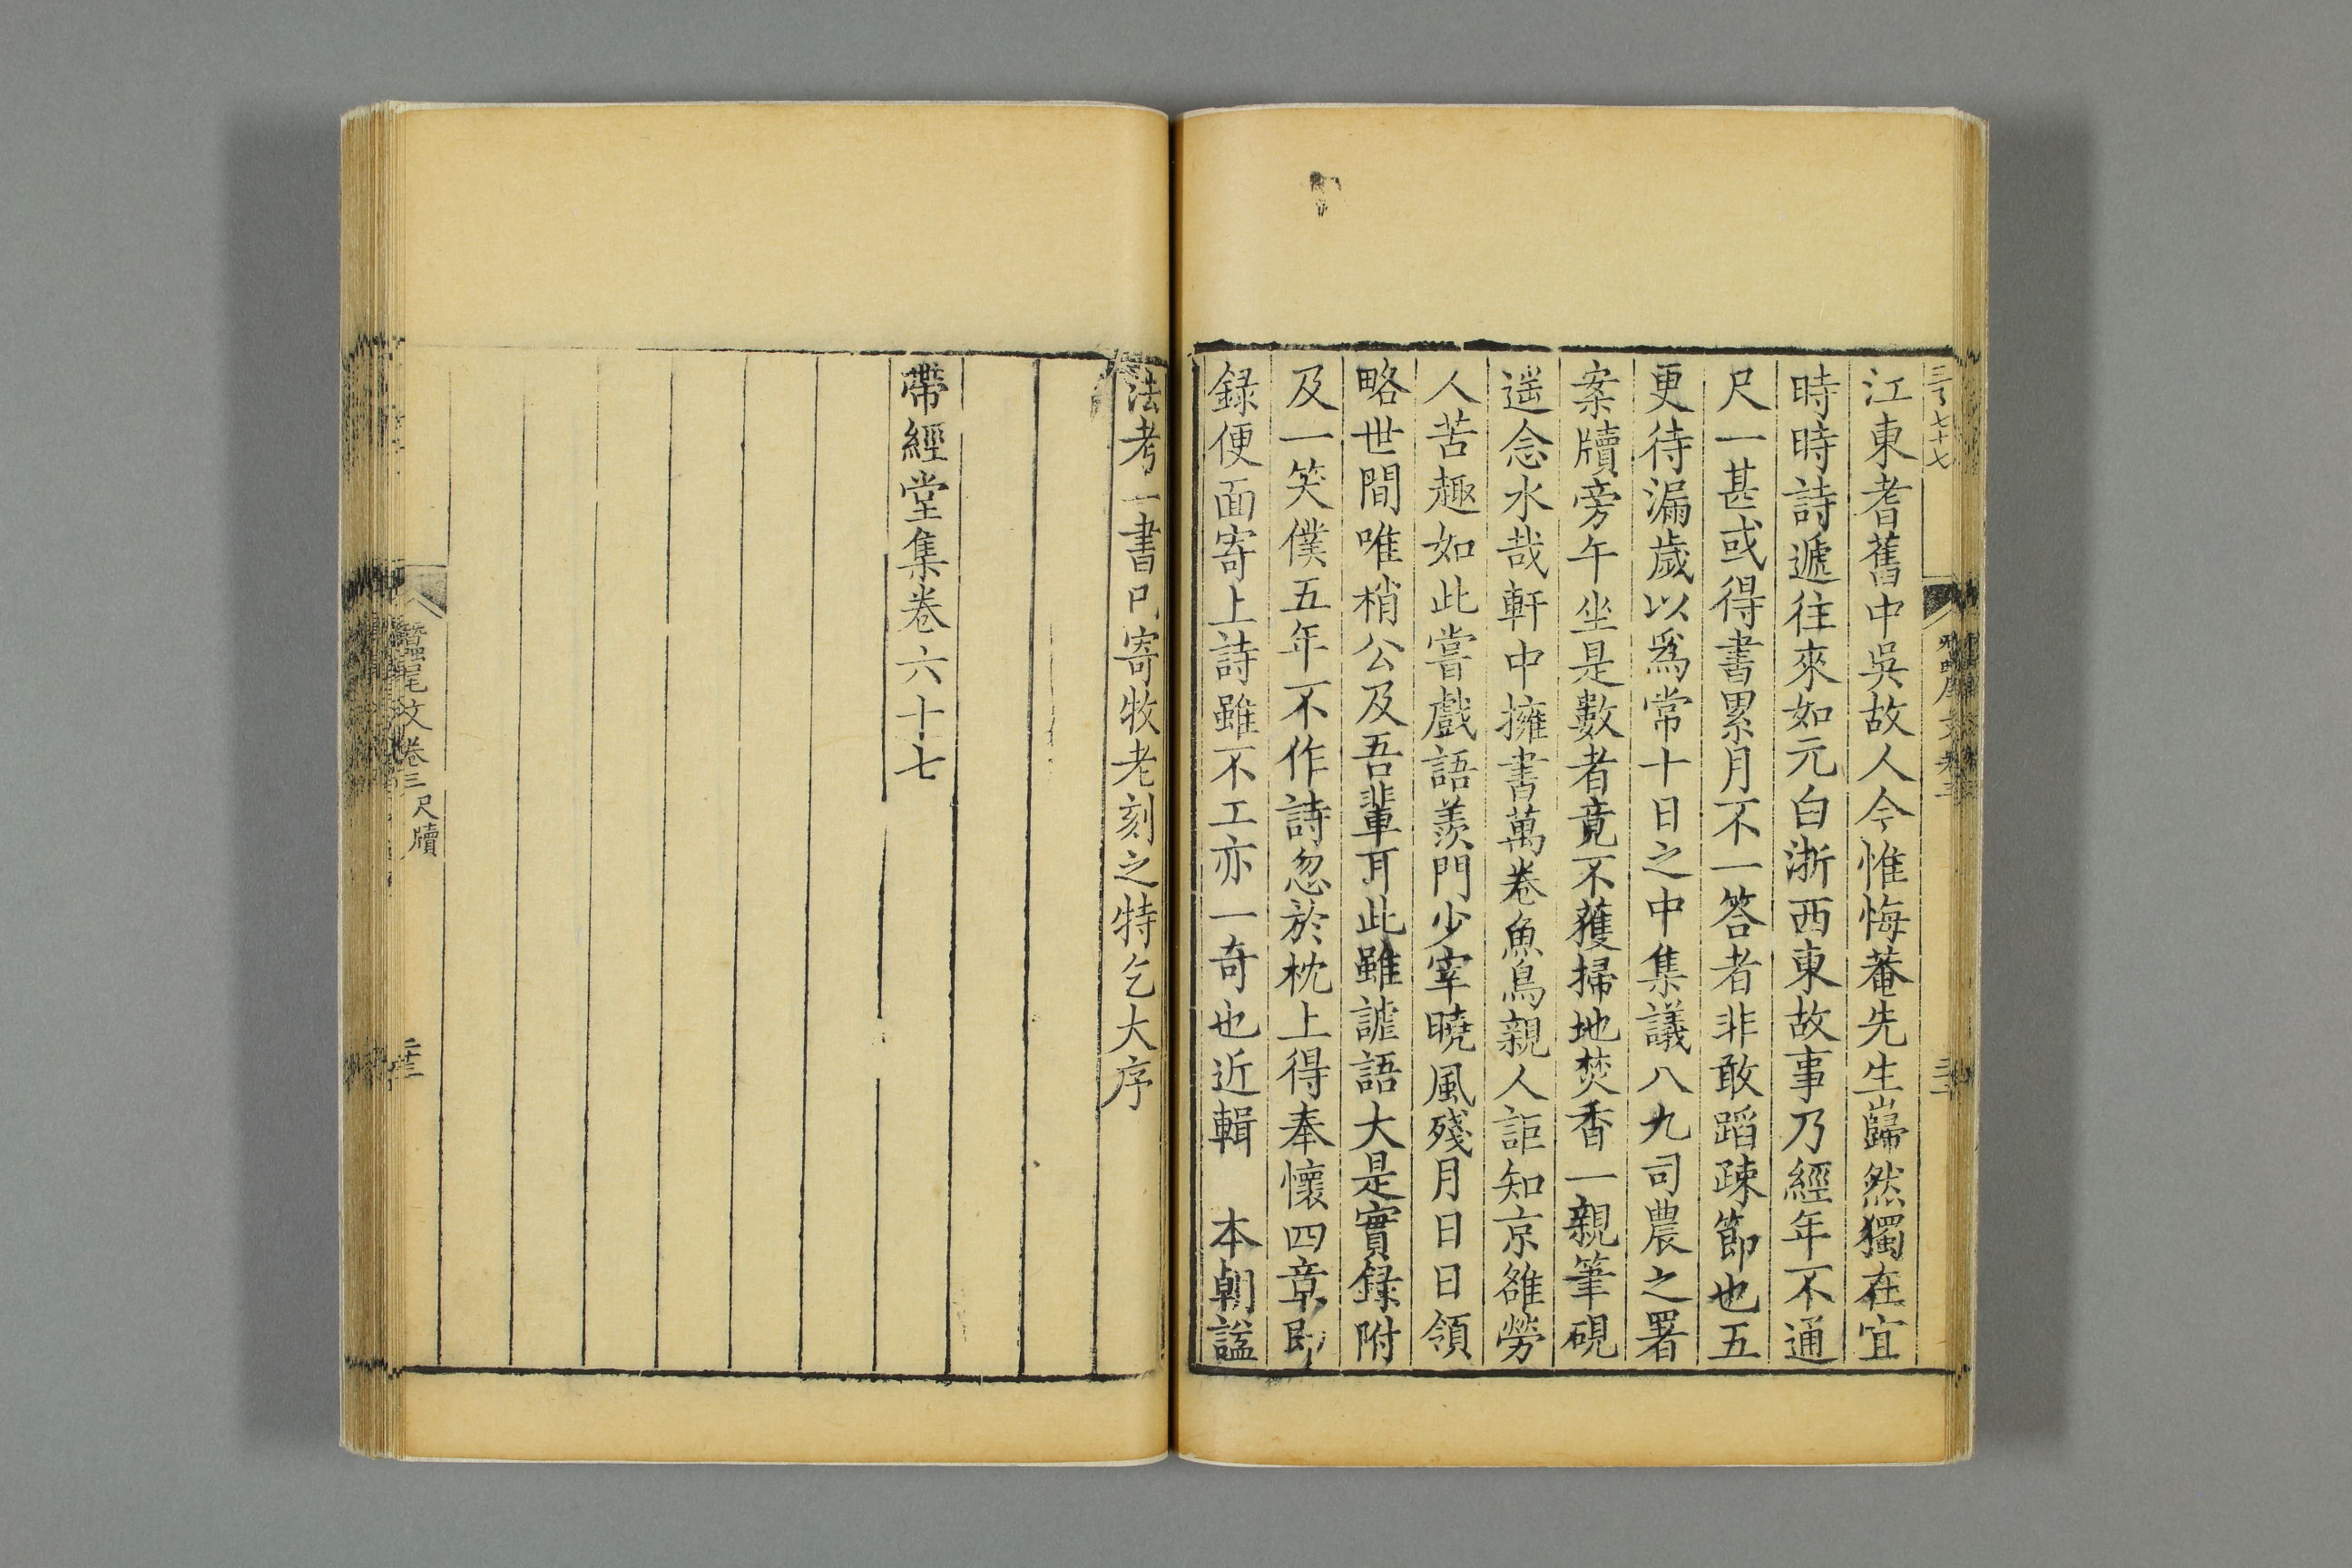 江東耆舊中吳故人今惟悔菴先生巋然獨在宜
時時詩遞往來如元白浙西東故事乃經年不通
尺一甚或得書累月不一答者非敢蹈疎節也五
更待漏歲以爲常十日之中集議八九司農之署
案牘旁午坐是數者竟不獲掃地焚香一親筆硯
遥念水哉軒中擁書萬卷魚鳥親人詎知京雒勞
人苦趣如此嘗戲語羨門少宰曉風殘月日日領
略世間唯梢公及吾輩耳此雖謔語大是實録附
及一笑僕五年不作詩忽於枕上得奉懷四章即
録便面寄上詩雖不工亦一奇也近輯　本朝諡
法考一書已寄牧老刻之特乞大序
帶經堂集卷六十七
蠶尾文卷三 尺牘
二十三